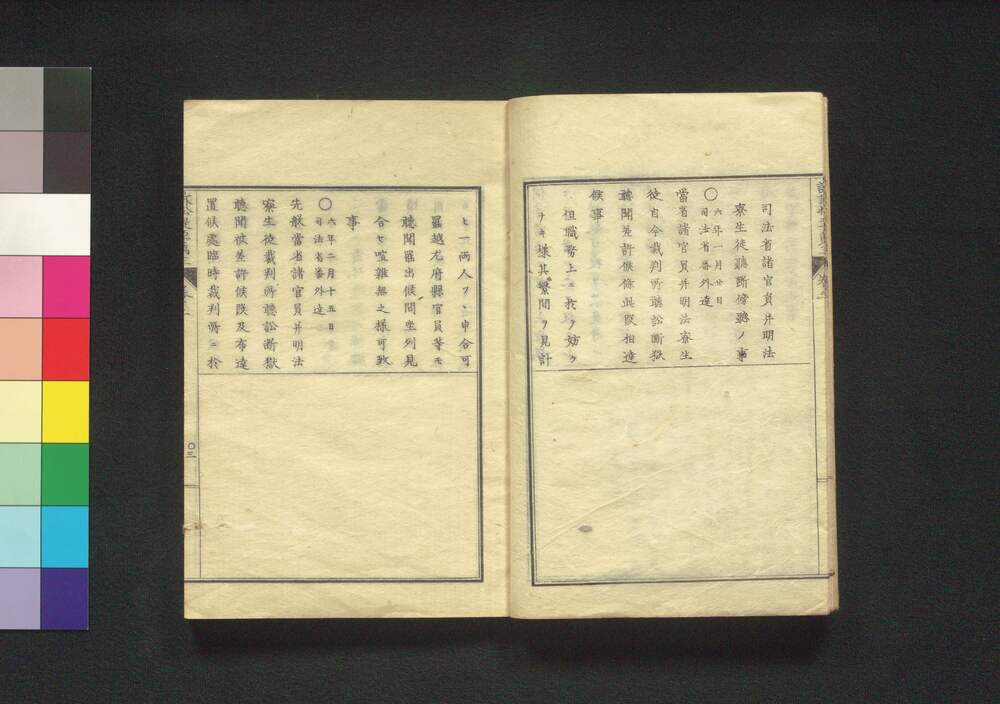 司法省諸官員并明法
寮生徒聽斷傍聽ノ事
〇六年一月廿日
司法省番外達
當省諸官員并明法寮生
徒自今裁判所聽訟斷獄
聽聞差許候條此段相達
候事
但職務上ニ於ヲ妨ケ
ナキ樣其繁閒ヲ見計
ヒ一両人ツヽ申合可
罷越尤府縣官員等モ
聽聞罷出候間坐列見
合セ喧雜無之樣可致
事
〇六年二月十五日
司法省番外達
先般當省諸官員并明法
寮生徒裁判所聽訟斷獄
聽聞被差許候段及布達
置候處臨時裁判所ニ於
〇三